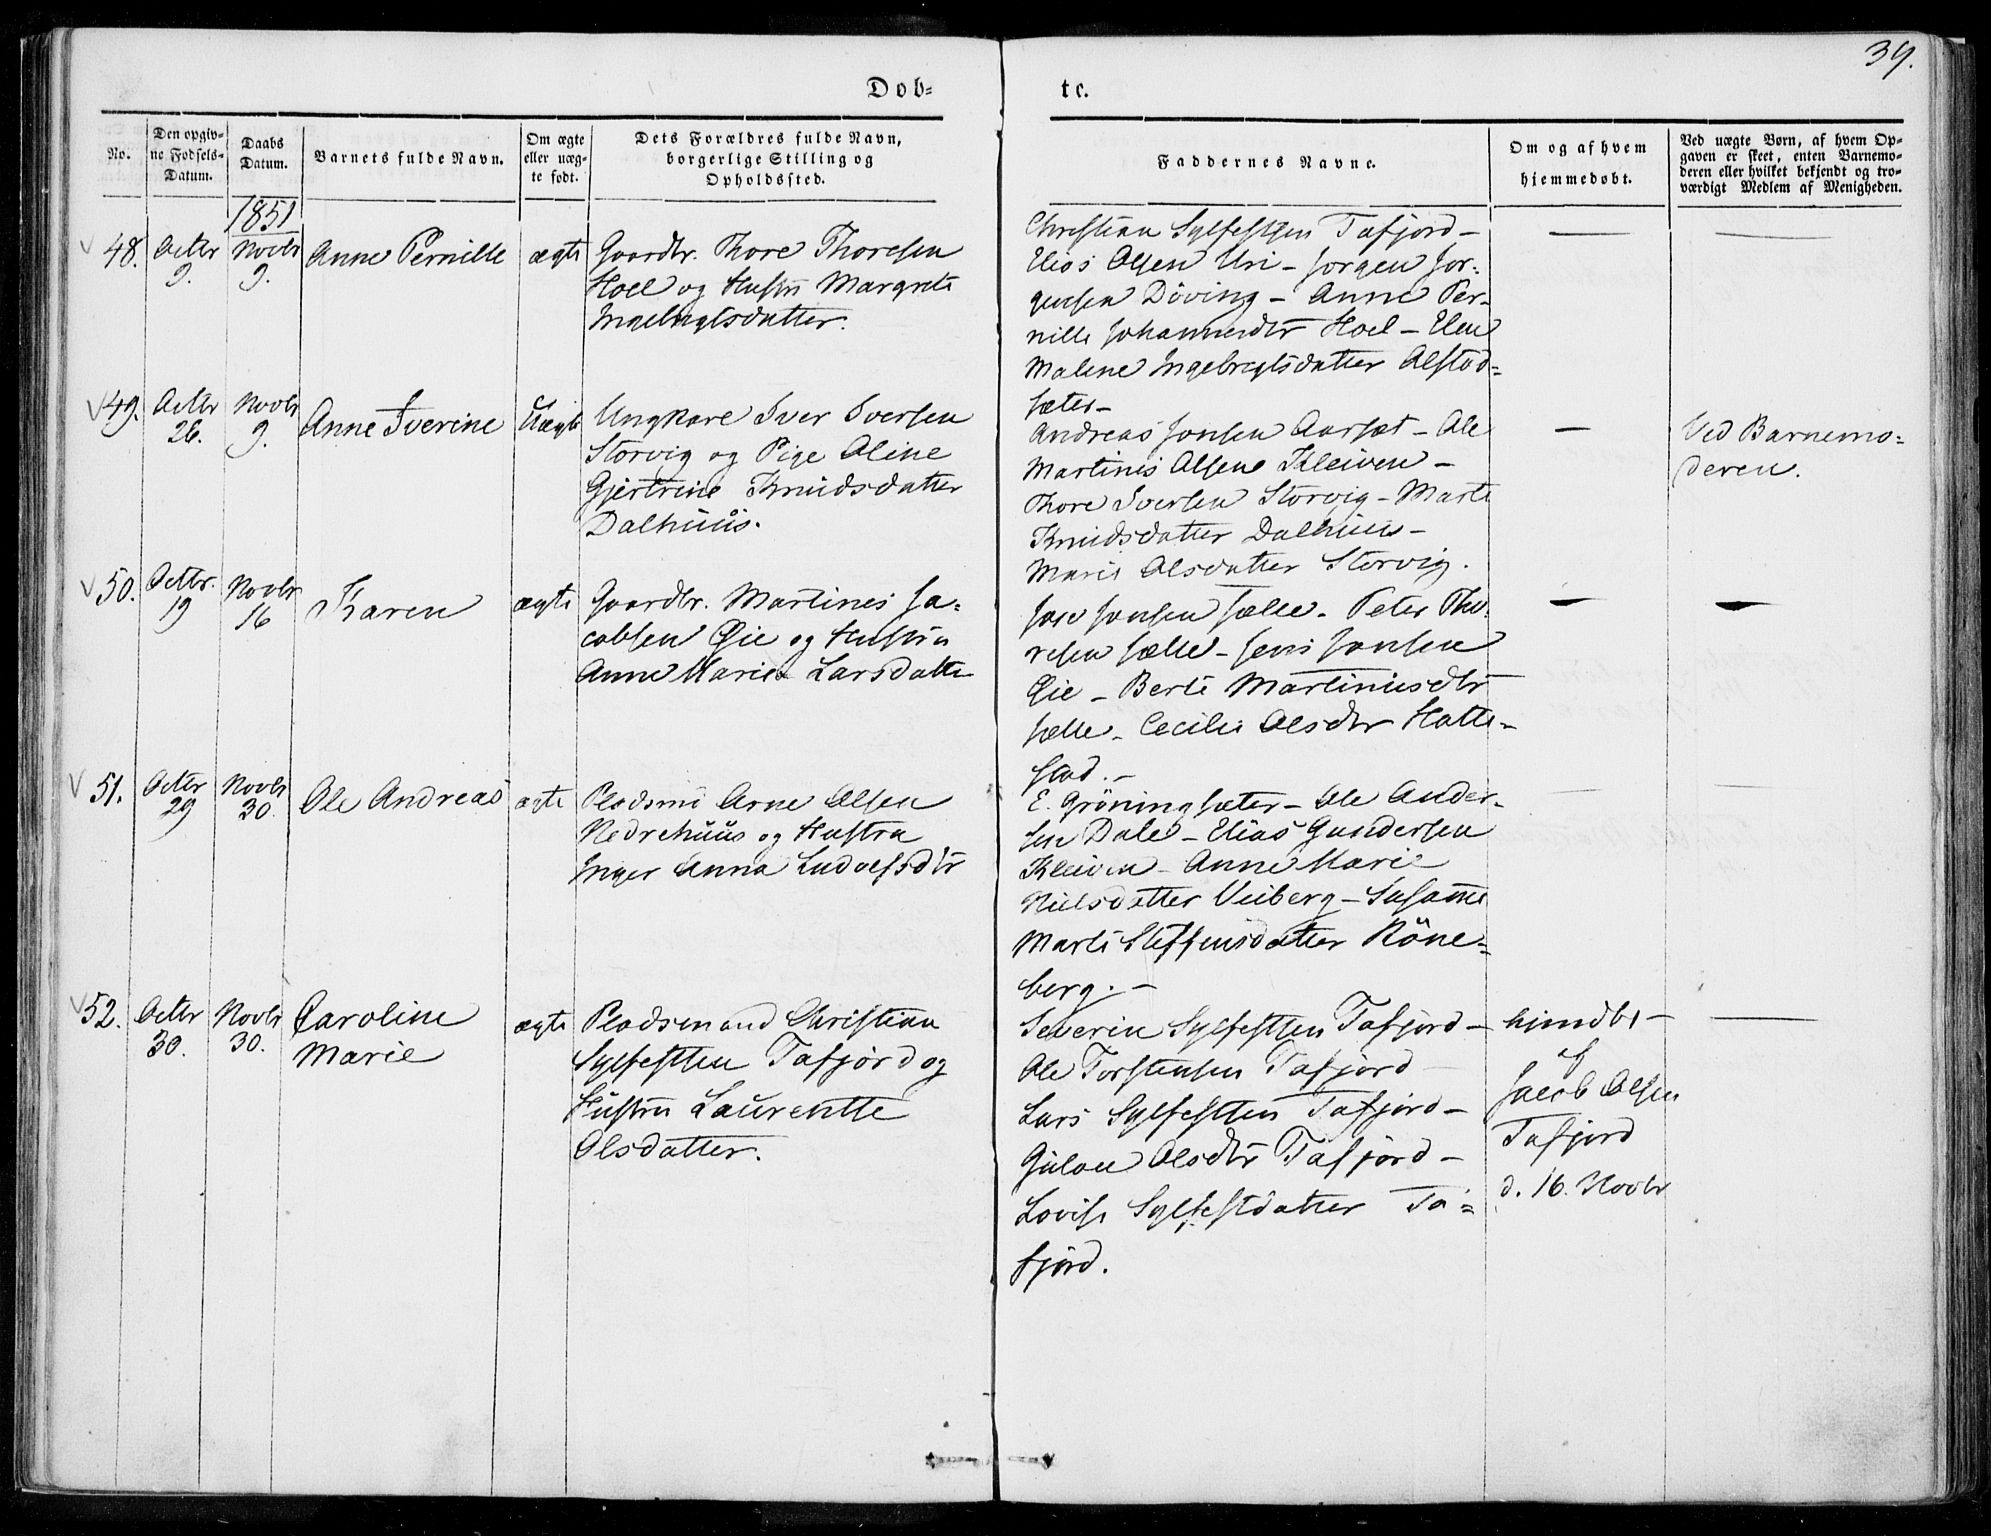 39.
Døb-
te.
No.
Den opgiv-
ne Fødsels-
Datum.
Daabs
Datum.
Barnets fulde Navn.
Om ægte
eller uæg-
te født.
Dets Forældres fulde Navn,
borgerlige Stilling og
Opholdssted.
Faddernes Navne.
Om og af hvem
hjemmedøbt.
Ved uægte Børn, af hvem Op-
gaven er skeet, enten Barnemo-
deren eller hvilket bekjendt og tro-
værdigt Medlem af Menigheden.
1851
48. Octbr 9. Novbr 9. Anne Pernille ægte
Gaardbr. Thore Thoresen
Hoel og Hustru Margrete
Ingebrigtsdatter.
Christian Sylfestsen Tafjord –
Elias Olsen Uri – Jørgen Jør-
gensen Døving – Anne Per-
nille Johannesdtr Hoel – Elen
Malene Ingebregtsdatter Alstad-
sæter –
49. Octbr 26. Novbr 9. Anne Iverine Uægte
Ungkare Iver Iversen
Storvig og Pige Oline
Gjertrine Knudsdatter
Dalhuus.
Andreas Jonsen Aarset – Ole
Martinus Olsen Kleiven –
Thore Iversen Storvig – Marte
Knudsdatter Dalhuus –
Marie Olsdatter Storvig.
Ved Barnemo-
deren.
50. Octbr. 19 Novbr 16 Karen ægte
Gaardbr. Martines Ja-
cobsen Øie og Hustru
Anne Marie Larsdatter
Jonsen Sælle – Peter Tho-
resen Sælle – Jens Jonsen
Øie – Berte Martinusdtr
Sælle – Cecilie Olsdtr Hatte-
stad. –
51. Octbr 29 Novbr 30. Ole Andreas ægte
Pladsmd Arne Olsen
Nedrehuus og Hustru
Inger Anna Ludvesdtr
E. Grøningsæter – Ole Ander-
sen Dale – Elias Gundersen
Kleiven – Anne Marie
Nielsdatter Veiberg – Susanne
Marte Steffensdatter Røne-
berg. –
52. Octbr 30. Novbr 30. Caroline
Marie
ægte
Pladsmand Christian
Sylfestsen Tafjord og
Hustru Laurentse
Olsdatter.
Severin Sylfestsen Tafjord –
Ole Torstensen Tafjord
Lars Sylfestsen Tafjord –
Gulou Olsdtr Tafjord –
Lovise Sylfestdatter Ta-
fjord.
hjmdbt –
af
Jacob Olsen
Tafjord
d. 16. Novbr